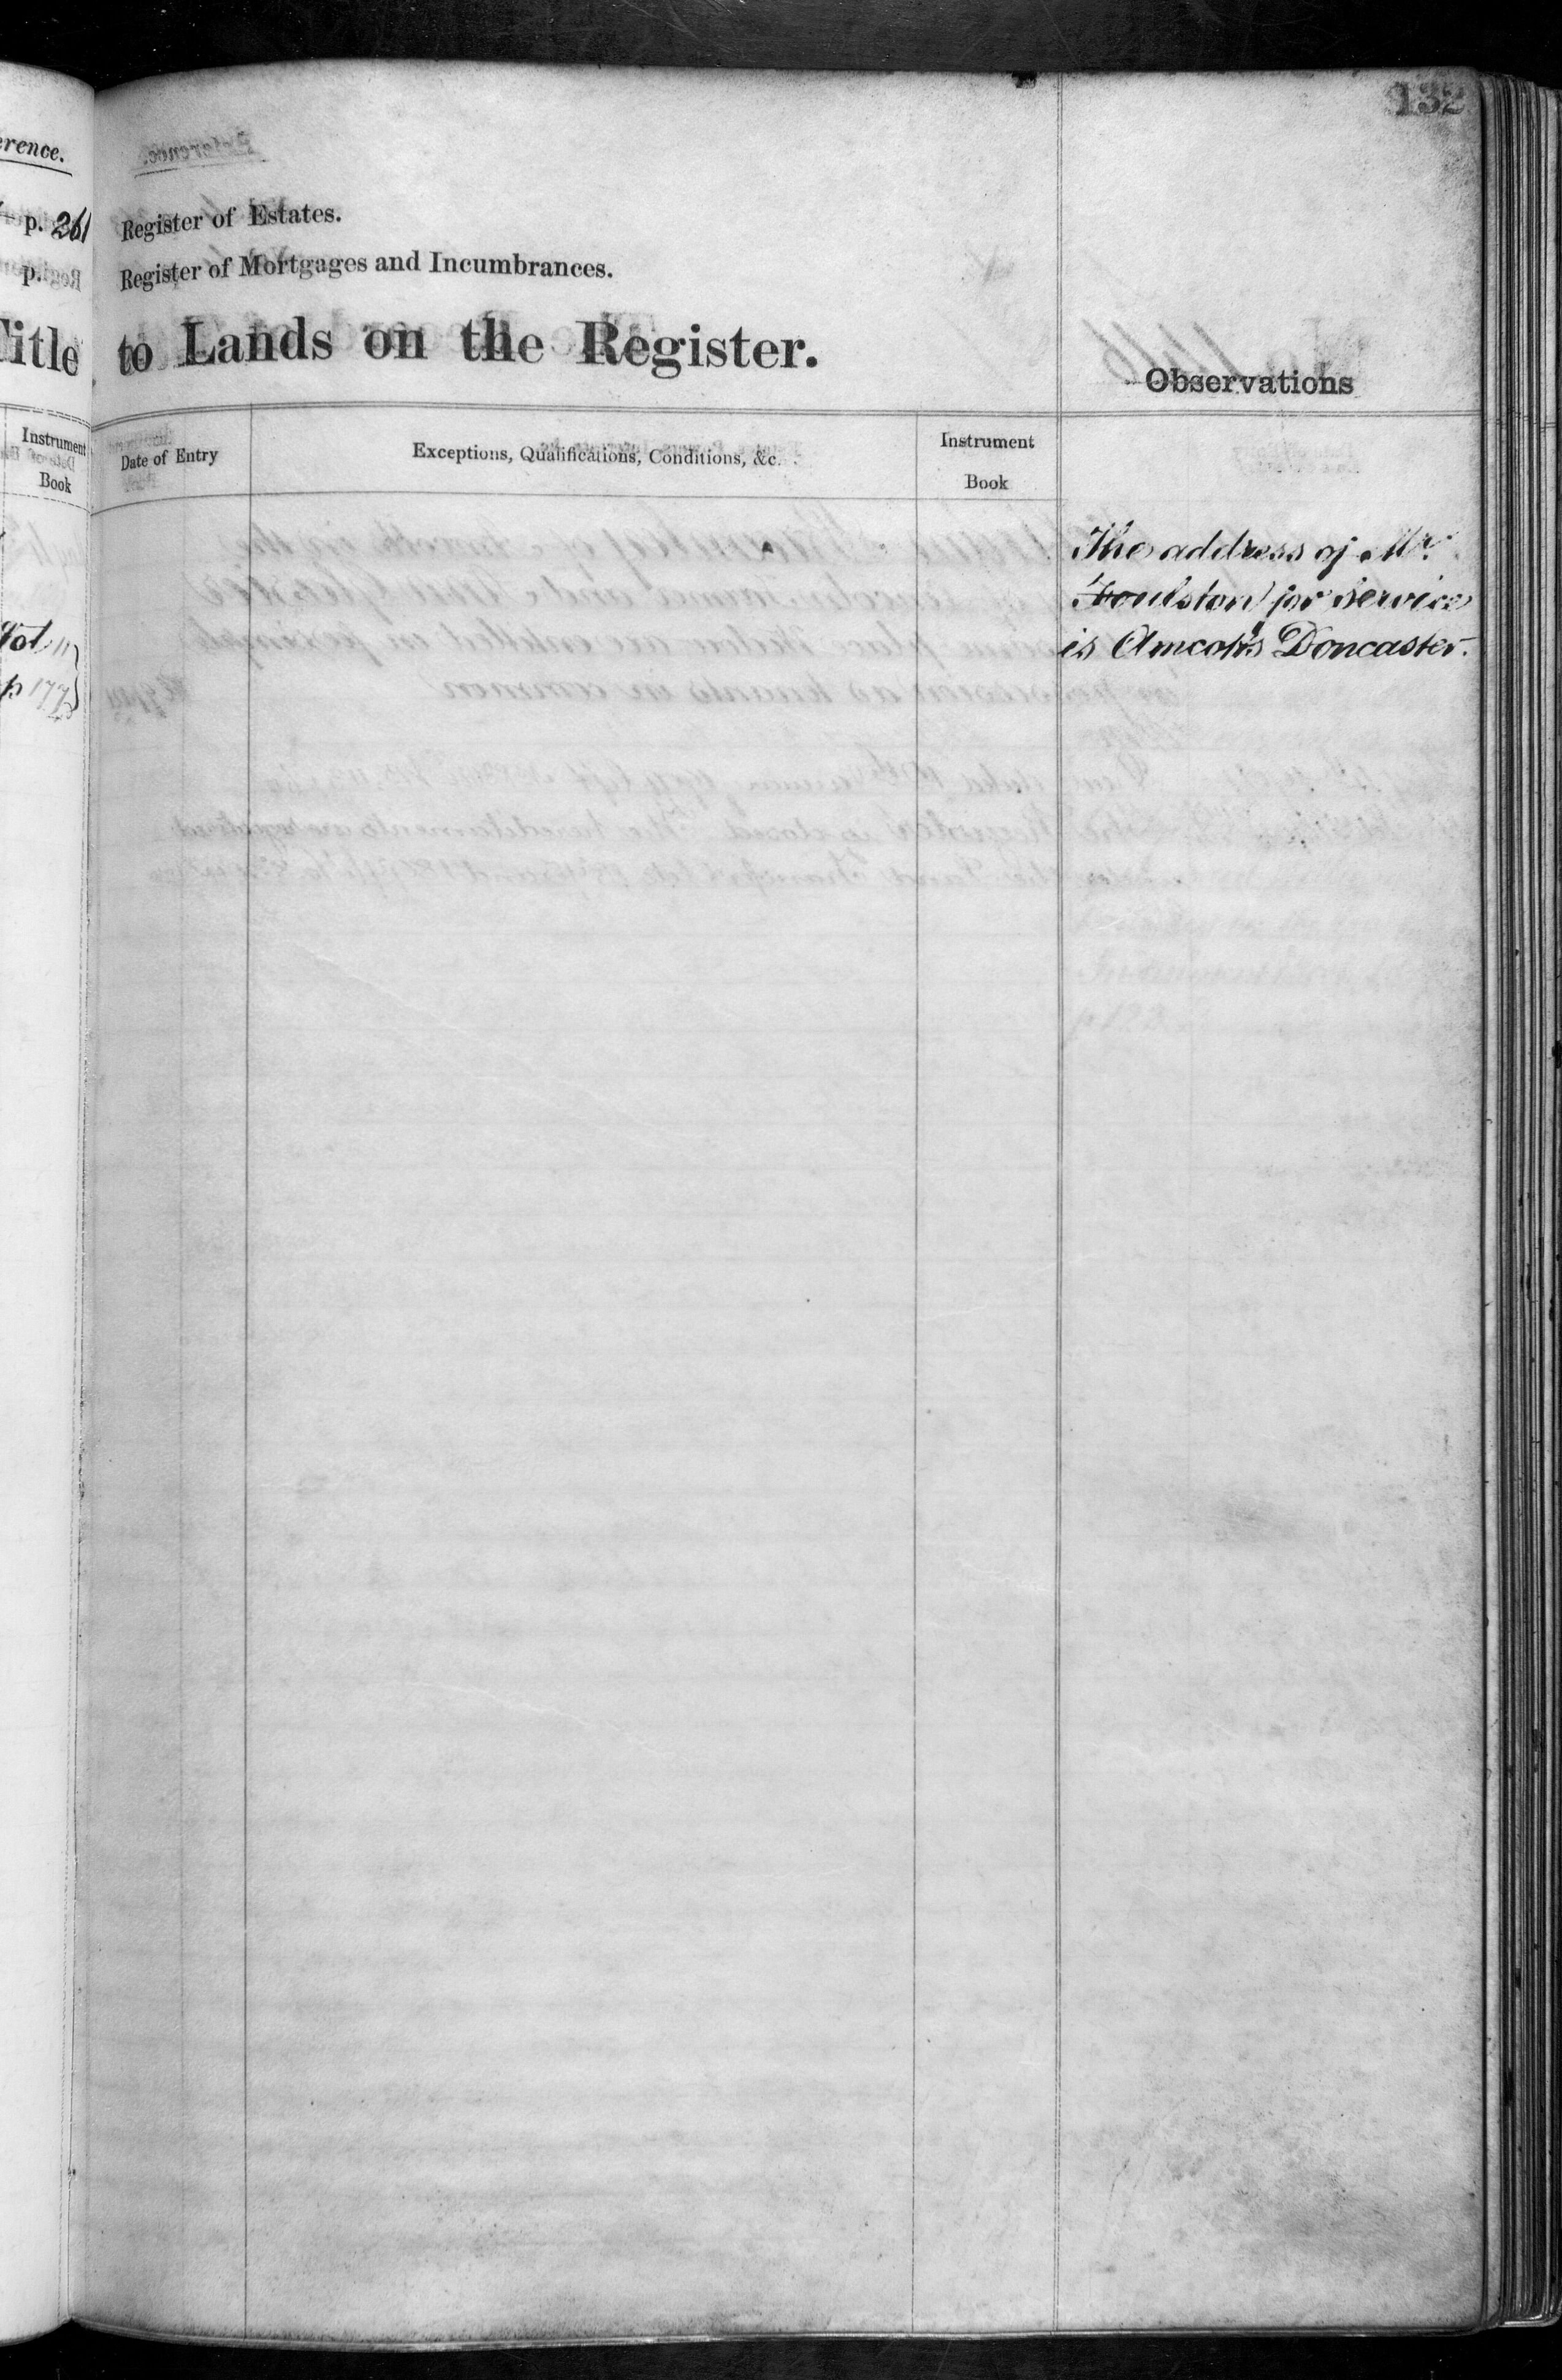 132
erence.
p. 261
p.
Title
Instrument
Book
Vol 11
p 177
Register of Estates.
Register of Mortgages and Incumbrances.
to Lands on the Register.
Observations
Date of Entry
Exceptions, Qualifications, Conditions, &c.
Instrument
Book
The address of Mr
Foulston for service
is Amcotts Doncaster.